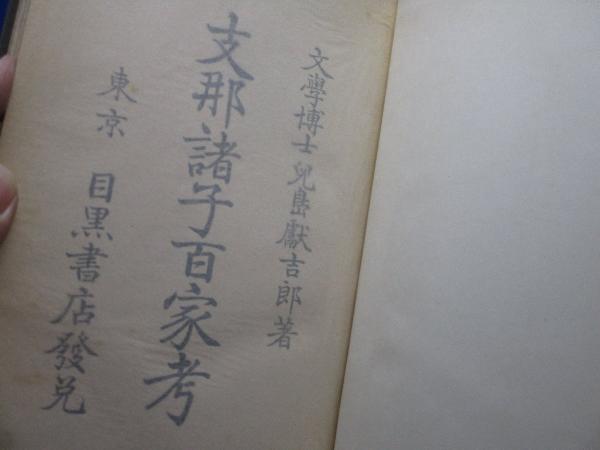 文學博士兒島獻吉郎著
支那諸子百家考
東京 目黒書店發兌